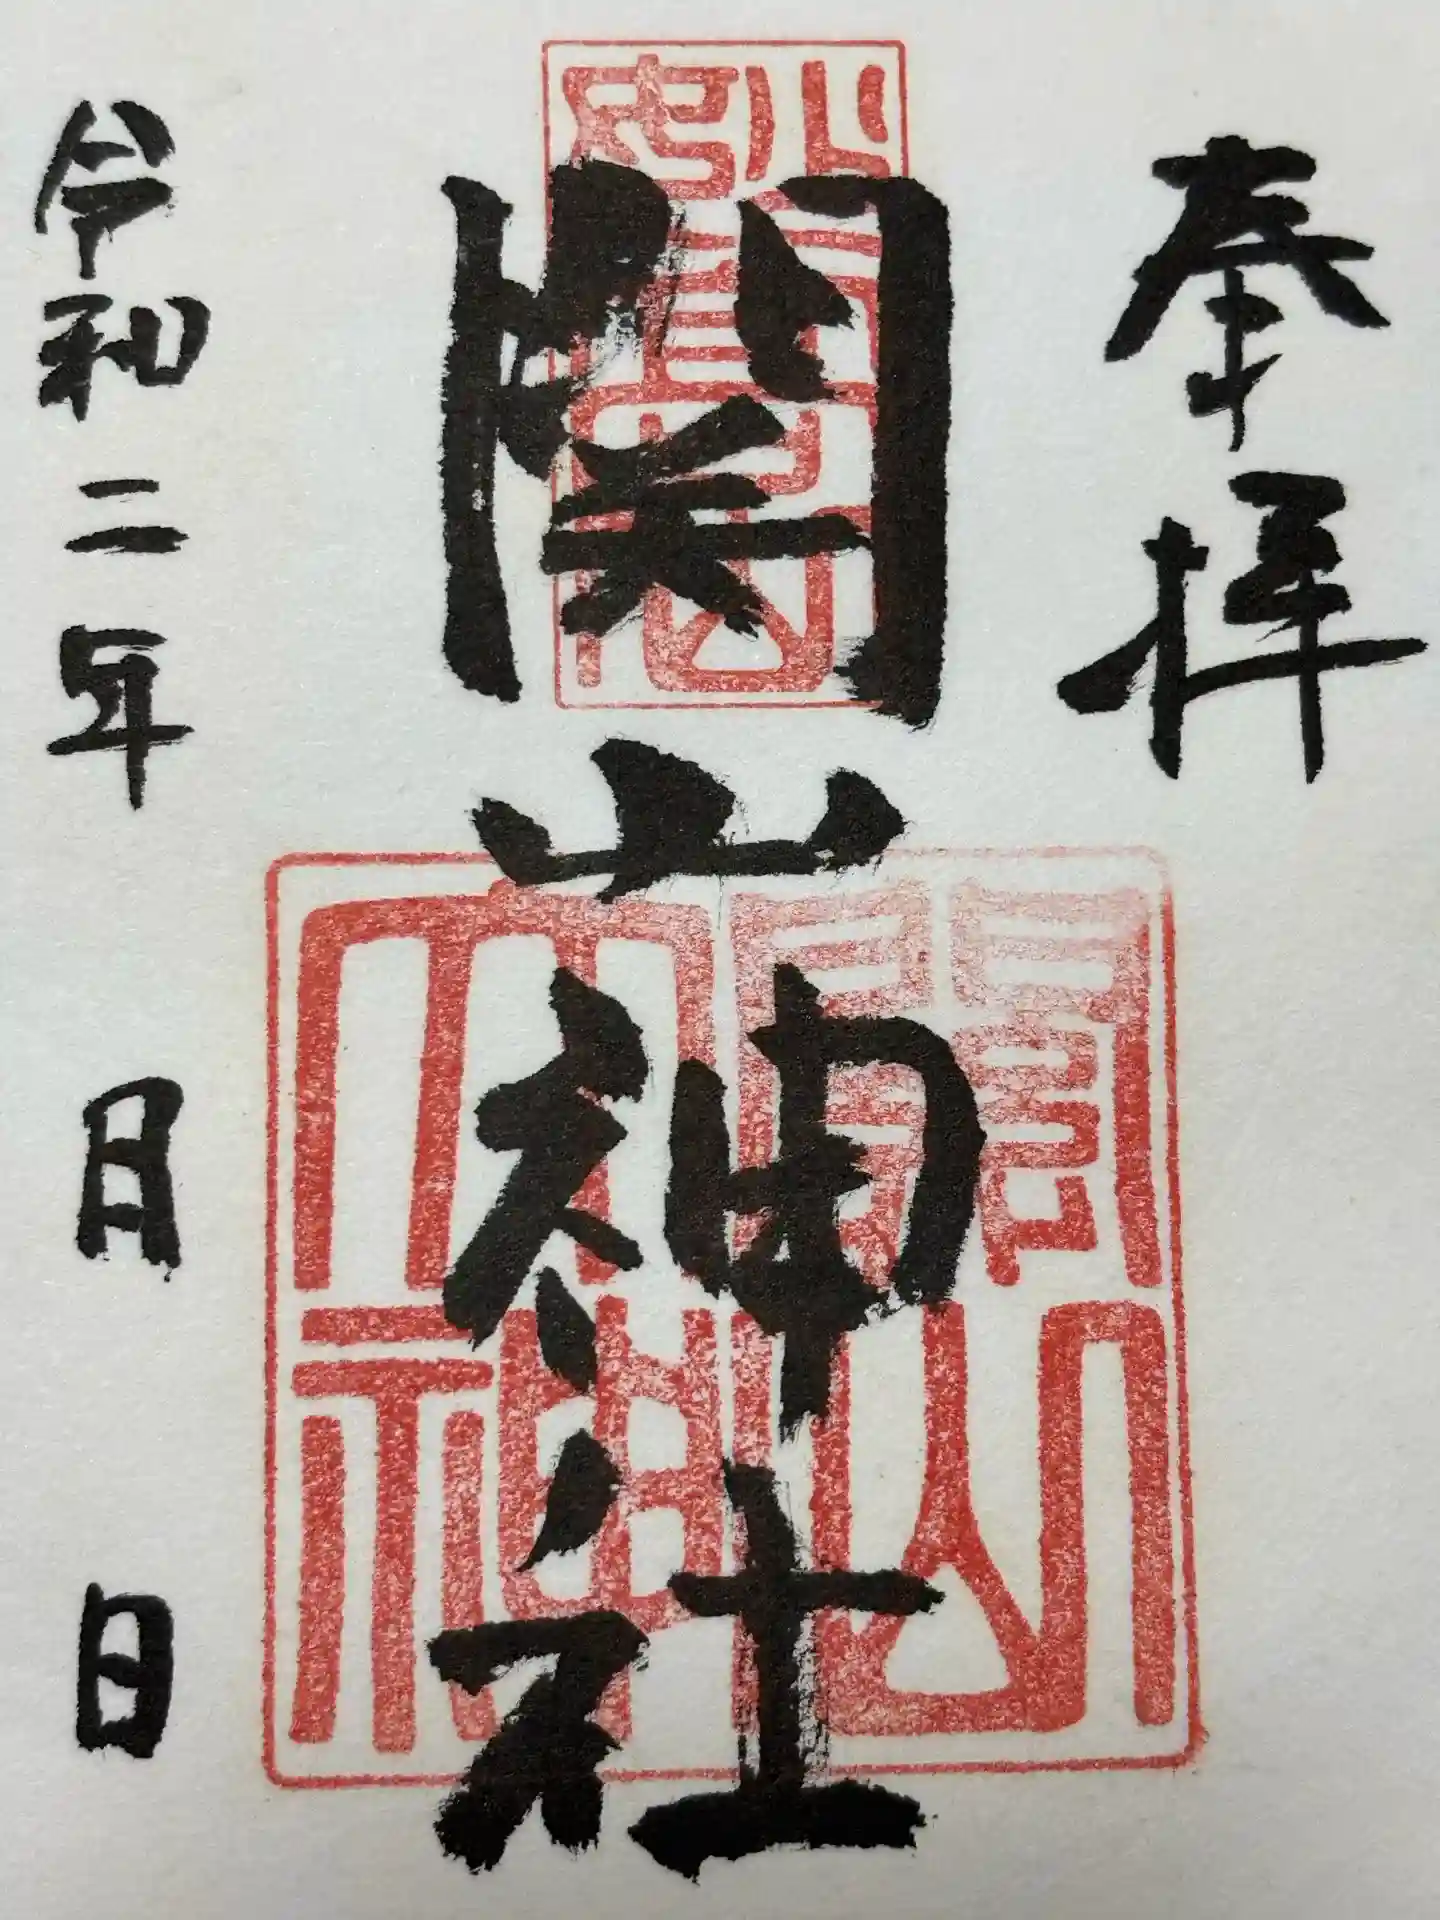 奉拝
関山神社
令和二年 月 日